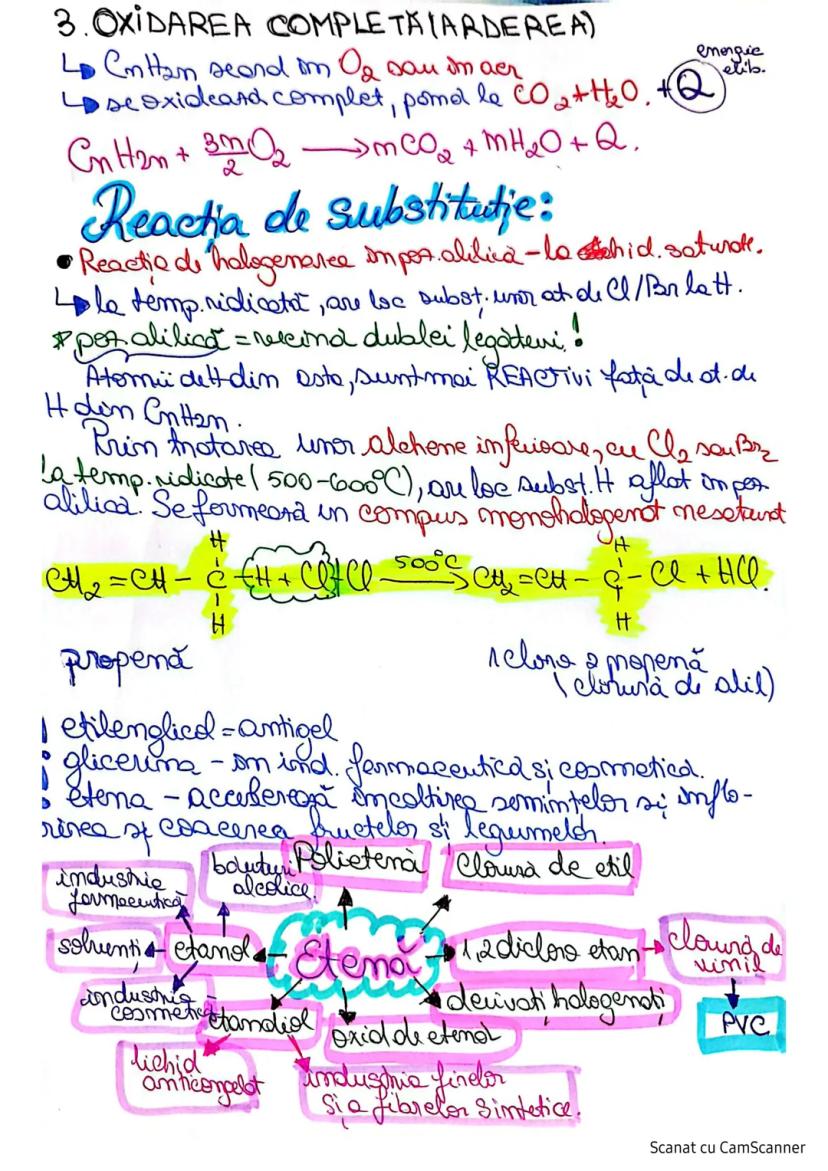 3. OXIDAREA COMPLETĂ (ARDEREA)
↳ CnH2n se ard în O2 sau în aer
energie
elib.
↳ se oxidează complet, până la CO2 + H2O. + Q
CnH2n + 3n/2 O2 → nCO2 + nH2O + Q.
Reacția de substituție:
• Reacția de halogenarea în poz. alilică - la hid. saturate.
↳ la temp. ridicată, are loc subst. unor at. de Cl/Br la H.
* poz. alilică = vecină dublei legături!
Atomii de H din asta, sunt mai REACTIVI față de at. de
H din CnH2n.
Prin tratarea unor alchene inferioare, cu Cl2 sau Br2
la temp. ridicate (500-600°C), are loc subst. H aflat în poz.
alilică. Se formează un compus monohalogenat nesaturat
H H
CH2 = CH - C - H + Cl - Cl 500°C → CH2 = CH - C - Cl + HCl.
H H
propenă 1 cloro 2 propenă
(clorură de alil)
! etilenglicol = antigel
glicerina - în ind. farmaceutică și cosmetică.
etena - accelerează încolțirea semințelor și înflo-
rirea și coacerea fructelor și legumelor.
industrie
farmaceutică
băuturi
alcolice.
Polietenă
Clorură de etil
solvenți
etanol
Etenă
1,2 dicloro etan
clorură de
vinil
industrie
cosmetică
etandiol
oxid de etenă
derivați halogenați
PVC
lichid
anticongelat
industria firelor
și a fibrelor sintetice.
Scanat cu CamScanner